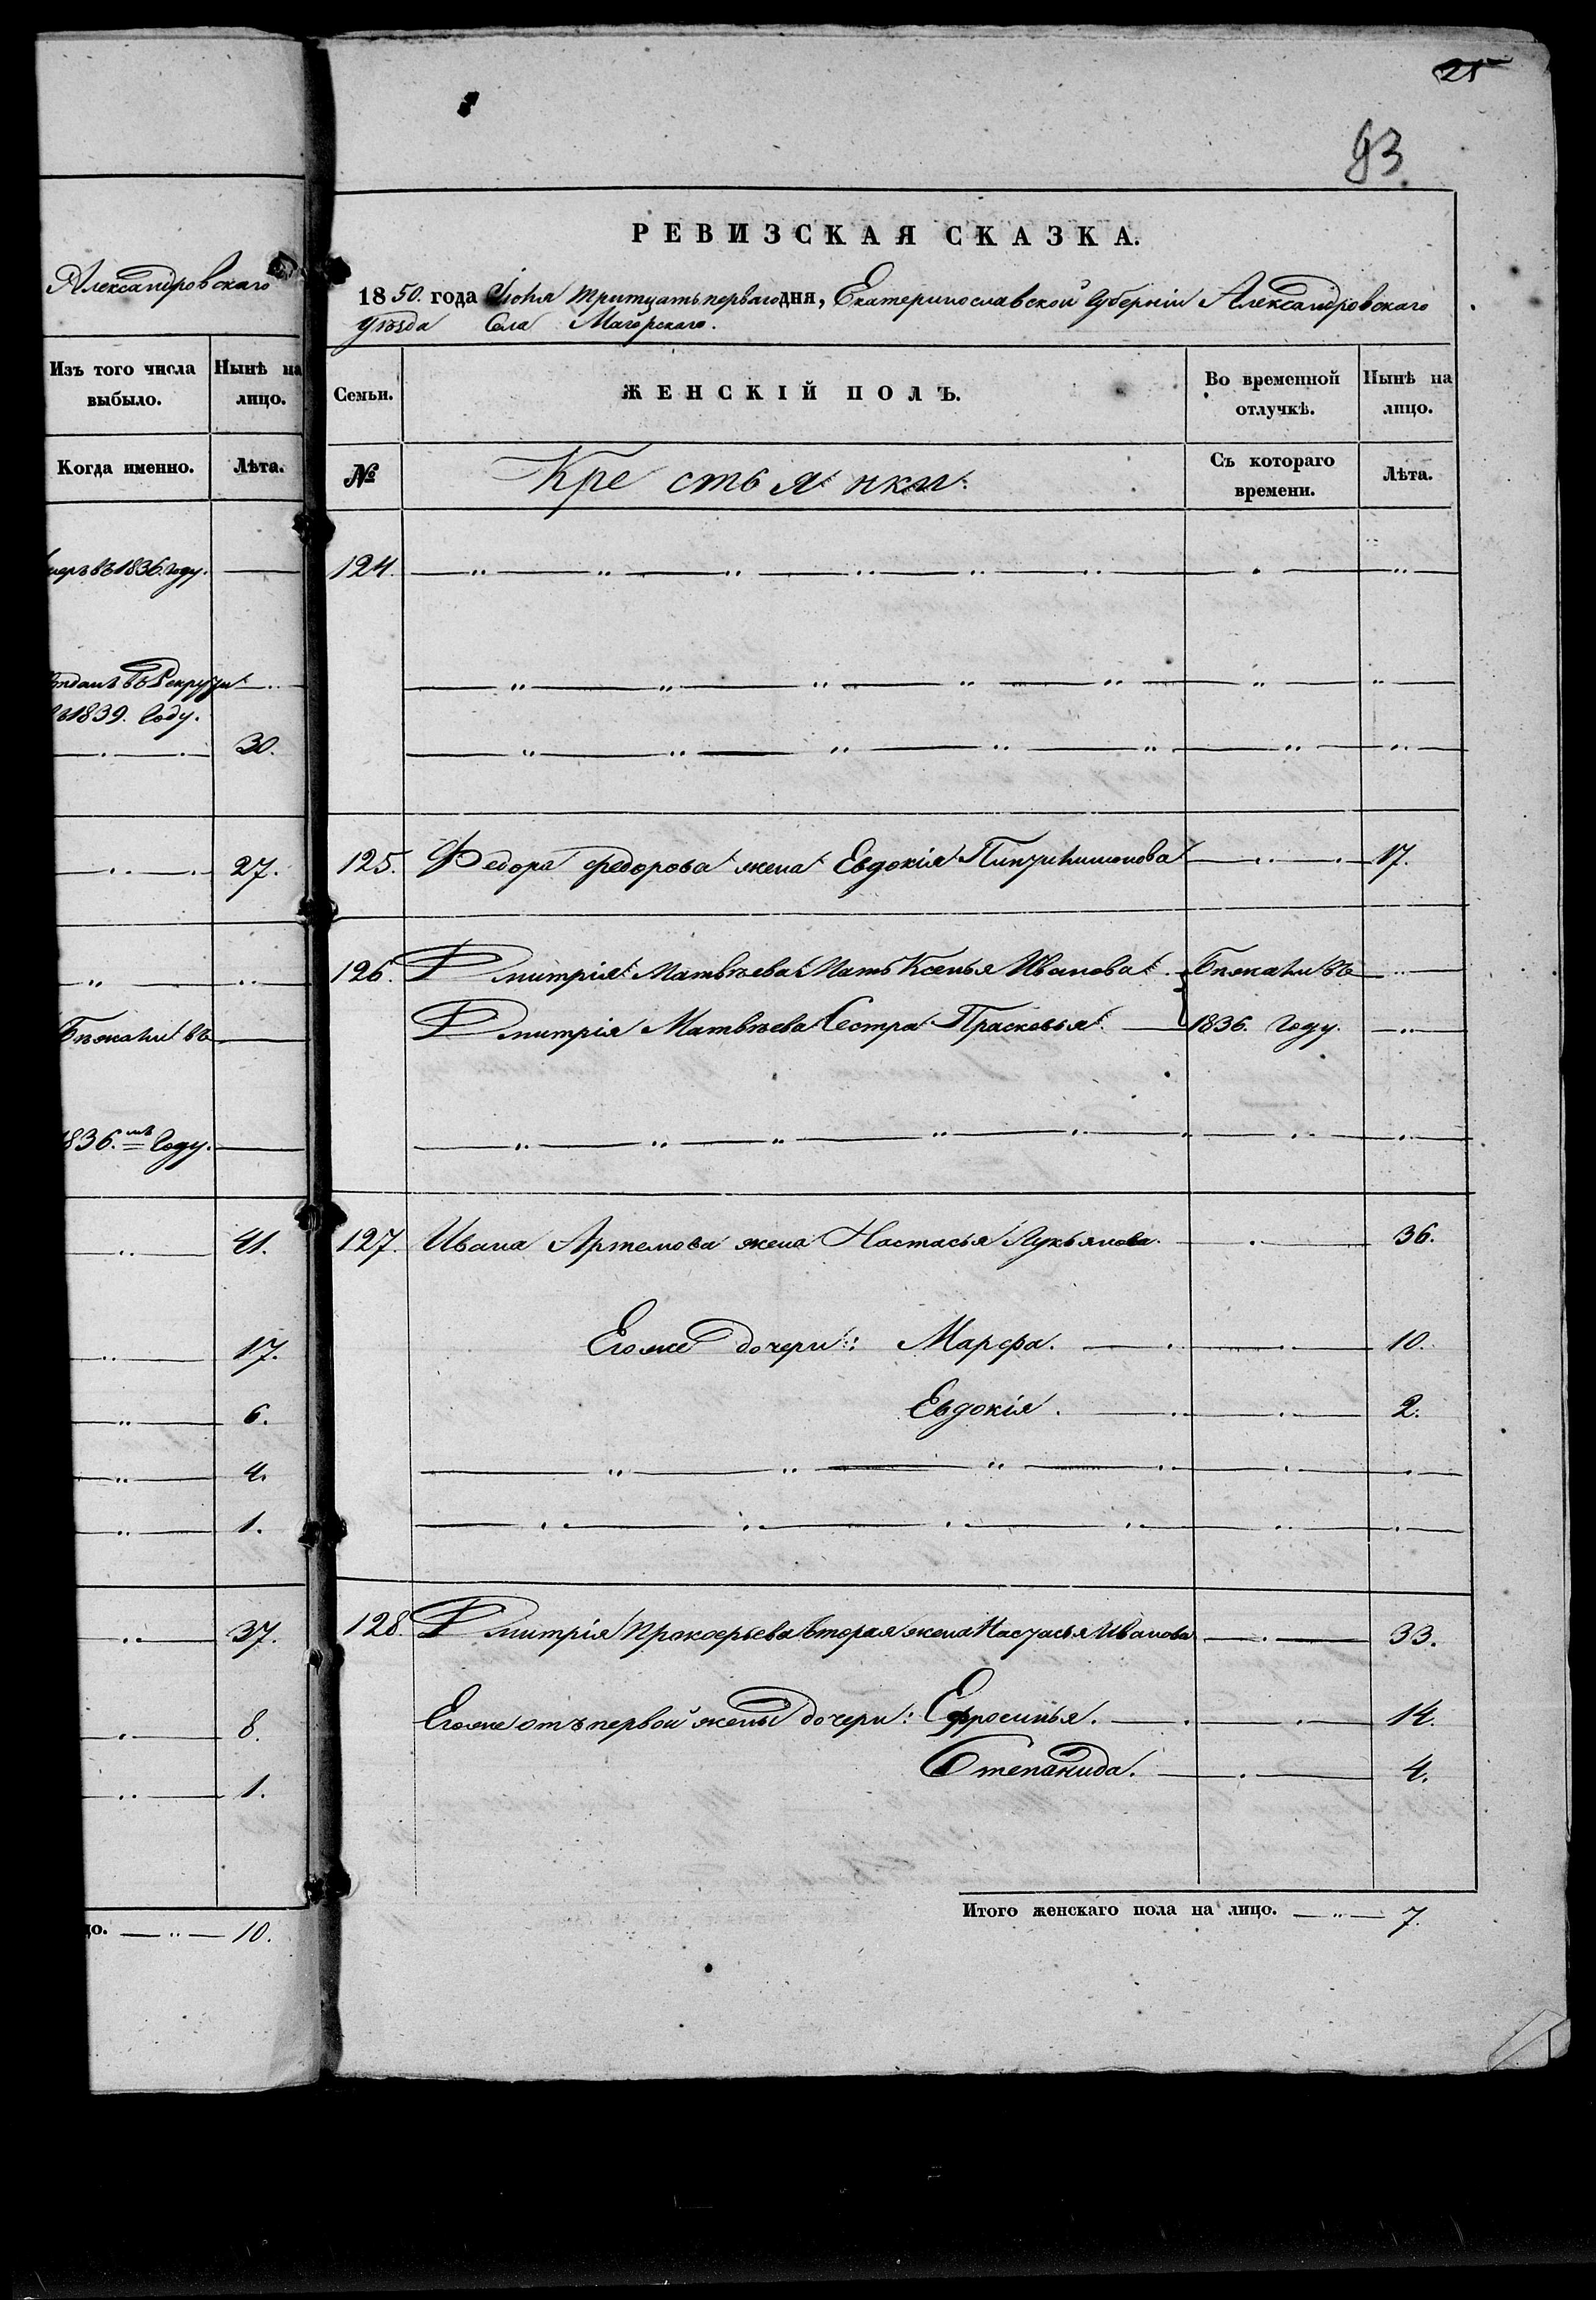 25
93
Александровскаго
Изъ того числа выбыло.
Нынѣ на лицо.
Когда именно.
Лѣта.
меръ въ 1836. году.
тданъ въ Рекруты
въ 1839. Году.
30.
27.
Бѣжали въ
1836.мъ Году.
41.
17.
6.
4.
1.
37.
8.
1.
цо. — 10.
РЕВИЗСКАЯ СКАЗКА.
1850. года тритцать перваго дня, Екатеринославской Губерніи Александровскаго
уѣзда Села Магорскаго.
Семьи.
ЖЕНСКІЙ ПОЛЪ.
Во временной отлучкѣ.
Нынѣ на лицо.
№
Крестьянки
Съ котораго времени.
Лѣта.
124.
125. Федора Федорова жена Евдокія 17.
126. Дмитрія Матвѣева Мать Ксенья Иванова. Бѣжали въ
Дмитрія Матвѣева Сестра Прасковья. 1836. Году.
127. Ивана Артемова жена Настасья Лукьянова. 36.
Егоже дочери: Марфа. 10.
Евдокія. 2.
128. Дмитрія Прокофьева вторая жена Настасья Иванова 33.
Егоже отъ первой жены дочери: Ефросинья. 14.
Степанида. 4.
Итого женскаго пола на лицо. — 7.